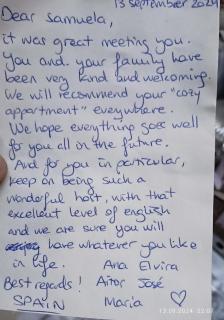 13 september 2024
Dear Samuela,
it was great meeting you.
You and your family have
been very kind and welcoming.
We will recommend your "cozy
appartment" everywhere.
We hope everything goes well
for you all in the future.
And for you in particular,
keep on being such a
wonderful host, with that
excellent level of english
and we are sure you will
have whatever you like
in life. Ana Elvira
Best regards! Aitor José
SPAIN María
13.09.2024 22:07